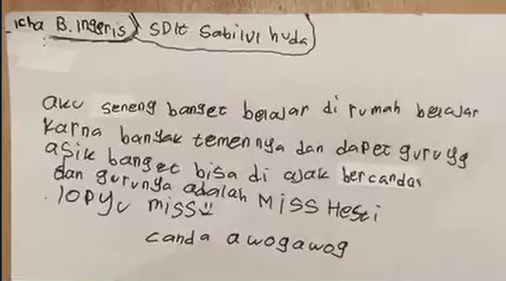 icha B. Inggris SDIt Sabilul huda
aku seneng banget belajar di rumah belajar
karna banyak temennya dan dapet guru yg
asik banget bisa di ajak bercanda
dan gurunya adalah Miss Hesti
lopyu miss
canda awogawog